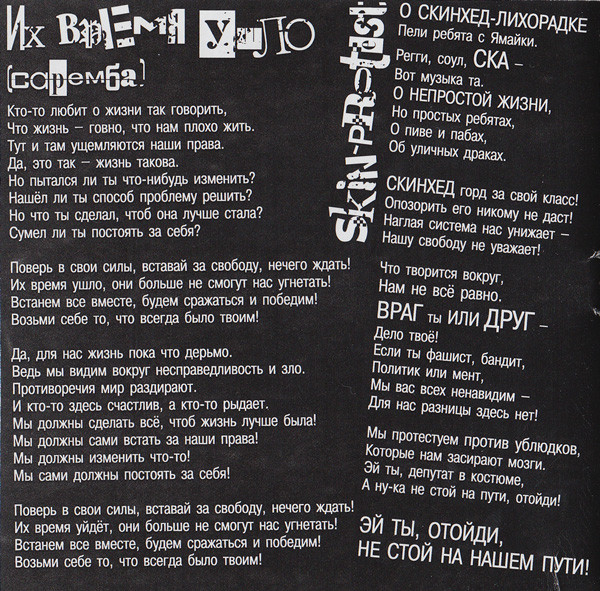 Их время ушло
(Саремба)
Кто-то любит о жизни так говорить,
Что жизнь – говно, что нам плохо жить.
Тут и там ущемляются наши права.
Да, это так – жизнь такова.
Но пытался ли ты что-нибудь изменить?
Нашёл ли ты способ проблему решить?
Но что ты сделал, чтоб она лучше стала?
Сумел ли ты постоять за себя?
Поверь в свои силы, вставай за свободу, нечего ждать!
Их время ушло, они больше не смогут нас угнетать!
Встанем все вместе, будем сражаться и победим!
Возьми себе то, что всегда было твоим!
Да, для нас жизнь пока что дерьмо.
Ведь мы видим вокруг несправедливость и зло.
Противоречия мир раздирают.
И кто-то здесь счастлив, а кто-то рыдает.
Мы должны сделать всё, чтоб жизнь лучше была!
Мы должны сами встать за наши права!
Мы должны изменить что-то!
Мы сами должны постоять за себя!
Поверь в свои силы, вставай за свободу, нечего ждать!
Их время уйдёт, они больше не смогут нас угнетать!
Встанем все вместе, будем сражаться и победим!
Возьми себе то, что всегда было твоим!
Skin-Protest
О СКИНХЕД-ЛИХОРАДКЕ
Пели ребята с Ямайки.
Регги, соул, СКА –
Вот музыка та.
О НЕПРОСТОЙ ЖИЗНИ,
Но простых ребятах,
О пиве и пабах,
Об уличных драках.
СКИНХЕД горд за свой класс!
Опозорить его никому не даст!
Наглая система нас унижает –
Нашу свободу не уважает!
Что творится вокруг,
Нам не всё равно.
ВРАГ ты ИЛИ ДРУГ –
Дело твоё!
Если ты фашист, бандит,
Политик или мент,
Мы вас всех ненавидим –
Для нас разницы здесь нет!
Мы протестуем против ублюдков,
Которые нам засирают мозги.
Эй ты, депутат в костюме,
А ну-ка не стой на пути, отойди!
ЭЙ ТЫ, ОТОЙДИ,
НЕ СТОЙ НА НАШЕМ ПУТИ!